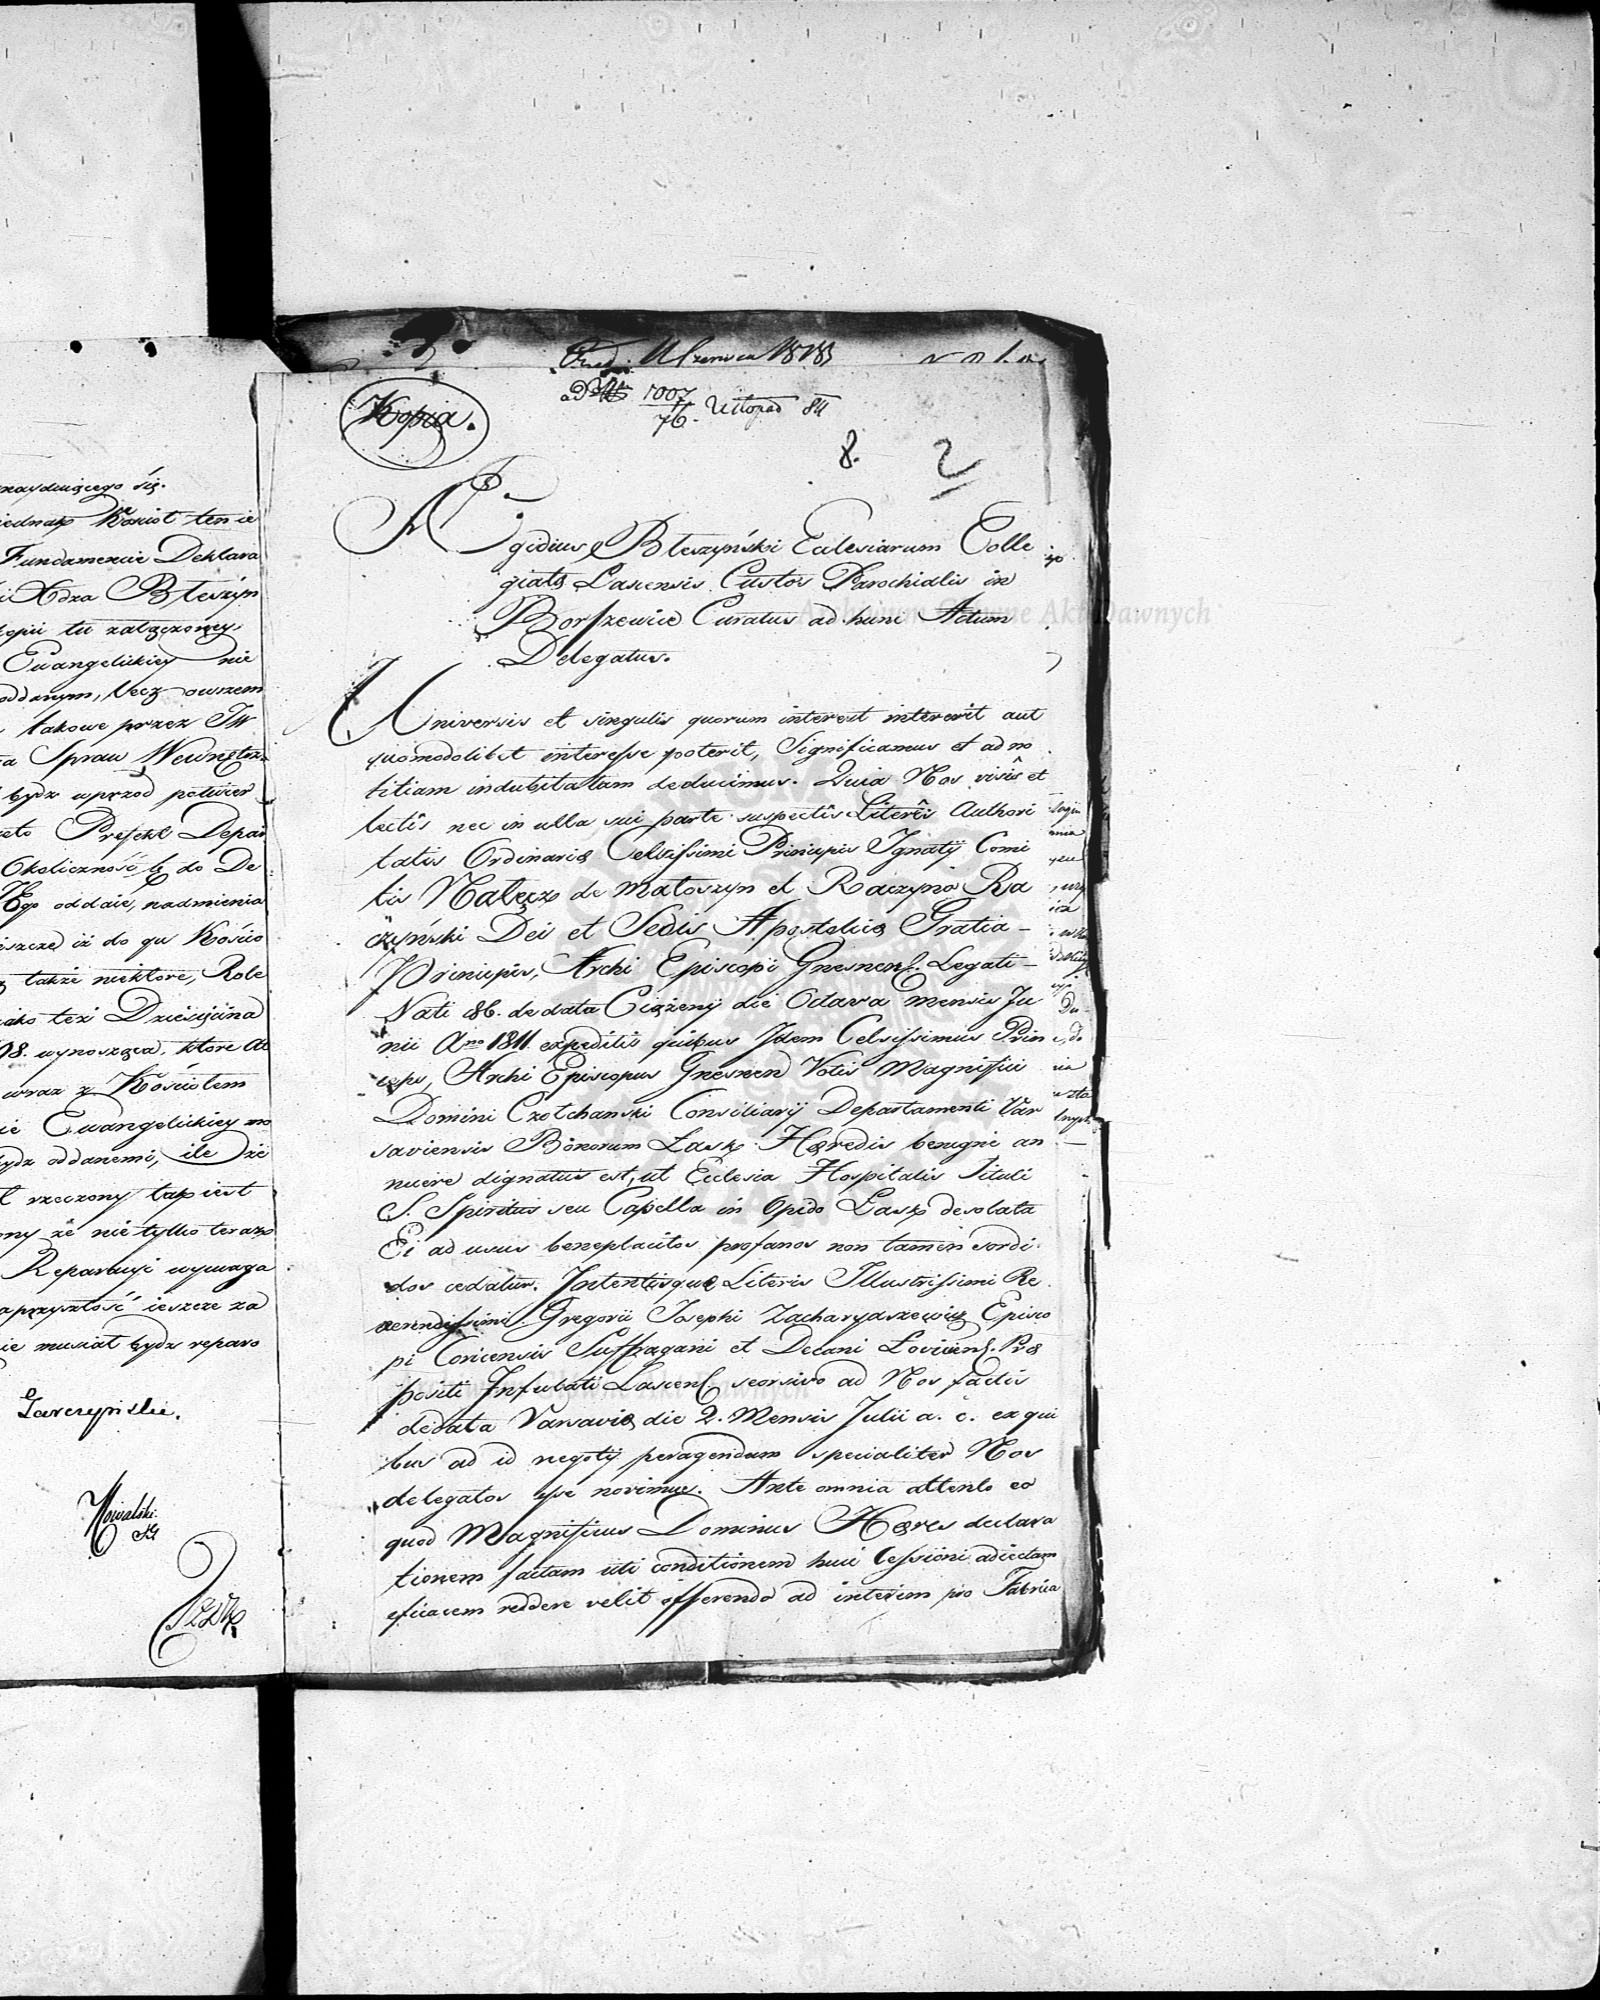 znayduiącego się.
iednak Kościoł ten ie
Fundamencie Deklara
Xdza Błeszyn
kopii tu załączoney
Ewangelickiey nie
oddanym, lecz owszem
takowe przez JW
Spraw Wewnętrz
bydź wprzod potwier
Prefekt Depar
Okoliczność tę do De
oddaie, nadmienia
ieszcze iż do gu Kościo
także niektore, Role
iako też Dziesięcina
98. wynosząca, ktore al
wraz z Kościołem
Ewangelickiey mo
bydź oddanemi, ile że
rzeczony tak iest
ny że nie tylko teraz
Reparacyi wymaga
naprzyszłość ieszcze za
ie musiał bydź reparo
Garczyński.
Kowalski
Kopia.
Czerwca 1818
1007
76. Listopad 811
8. 2
Ægidius Błeszyński Ecclesiarum Colle
giatæ Lascensis Custos Parochialis in
Borszewice Curatus ad hunc Actum
Delegatus.
Universis et singulis quorum interest intererit aut
quomodolibet interesse poterit, Significamus et ad no
titiam indubitatam deducimus. Quia Nos visis et
lectis nec in ulla sui parte suspectis Literis Authori
tatis Ordinariæ Celsissimi Principis Ignatÿ Comi
tis Nałęcz de Małoszyn et Raczyno Ra
czyński Dei et Sedis Apostolicæ Gratia –
Principis, Archi Episcopi Gnesnens. Legati –
Nati &c. de data Ciążenÿ die Octava mensis Ju
nii Ano 1811 expeditis quibus Idem Celsissimus Prin
ceps, Archi Episcopus Gnesnen Votis Magnifici
Domini Czołchanski Consiliarÿ Departamenti Var
saviensis Bonorum Łask Hæredis benigne an
nuere dignatus est, ut Ecclesia Hospitalis Tituli
S. Spiritus seu Capella in Opido Łask desolata
Ei ad usus beneplacitos profanos non tamen sordi
dos cedatur. Intentisque Literis Illustrissimi Re
verendissimi Gregorii Josephi Zacharyaszewicz Episco
pi Coricensis Suffragani et Decani Loviciens. Præ
positi Infulati Lascens. seorsivo ad Nos factis
de data Varsaviæ die 2. Mensis Julii a. c. ex qui
bus ad id negotÿ peragendum specialiter Nos
delegatos esse novimus. Ante omnia attento eo
quod Magnificus Dominus Hæres declara
tionem factam uti conditionem huic Cessioni adiectam
eficacem reddere velit offerendo ad interim pro Fabrica
Archiwum Główne Akt Dawnych